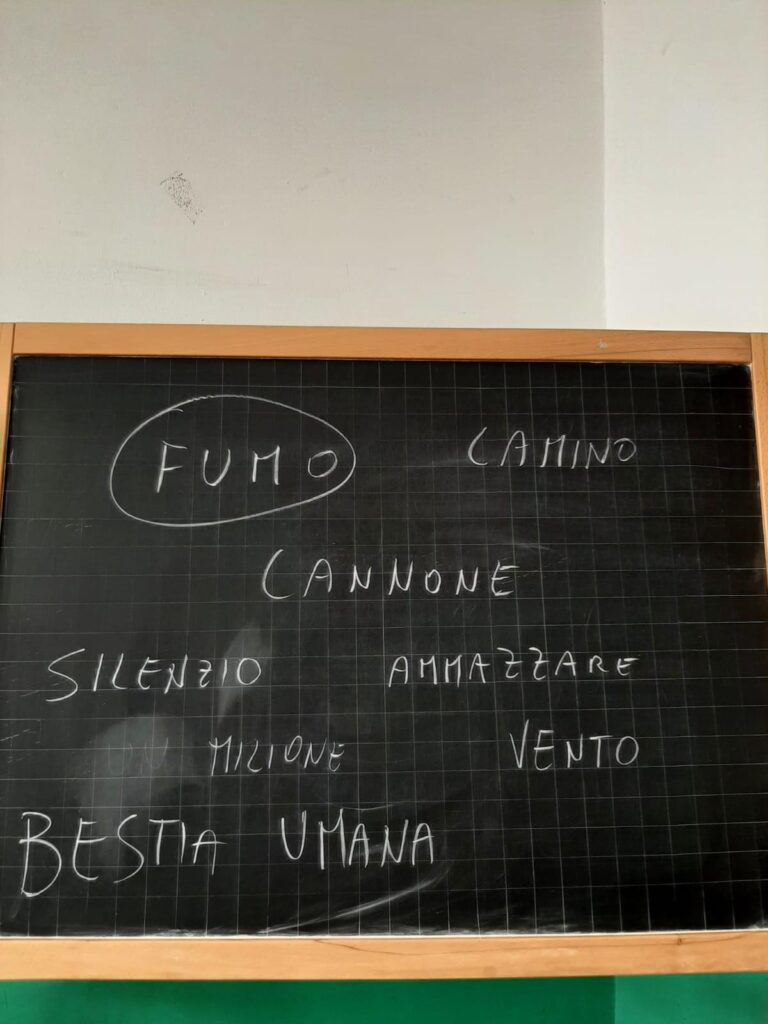 FUMO CAMINO
CANNONE
SILENZIO AMMAZZARE
UN MILIONE VENTO
BESTIA UMANA